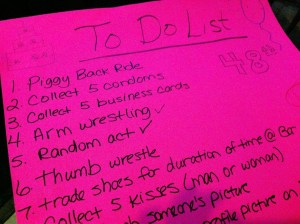 To Do List
48
1. Piggy Back Ride
2. Collect 5 condoms
3. Collect 5 business cards
4. Arm wrestling ✓
5. Random act ✓
6. Thumb wrestle
7. Trade shoes for duration of time @ Bar
Collect 5 kisses (man or woman)
with someone's picture
profile picture on